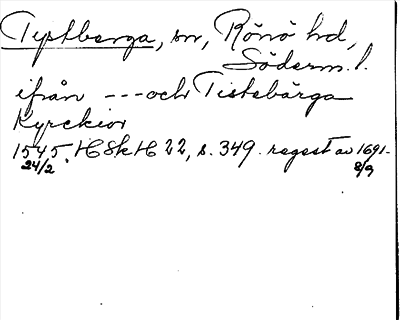 Tystberga, sn, Rönö hd,
Söderm. l.
ifrån --- och Tistebärga
Kyrckior
1545 24/2. HSkH 22, s. 349. regest av 1691 8/9.